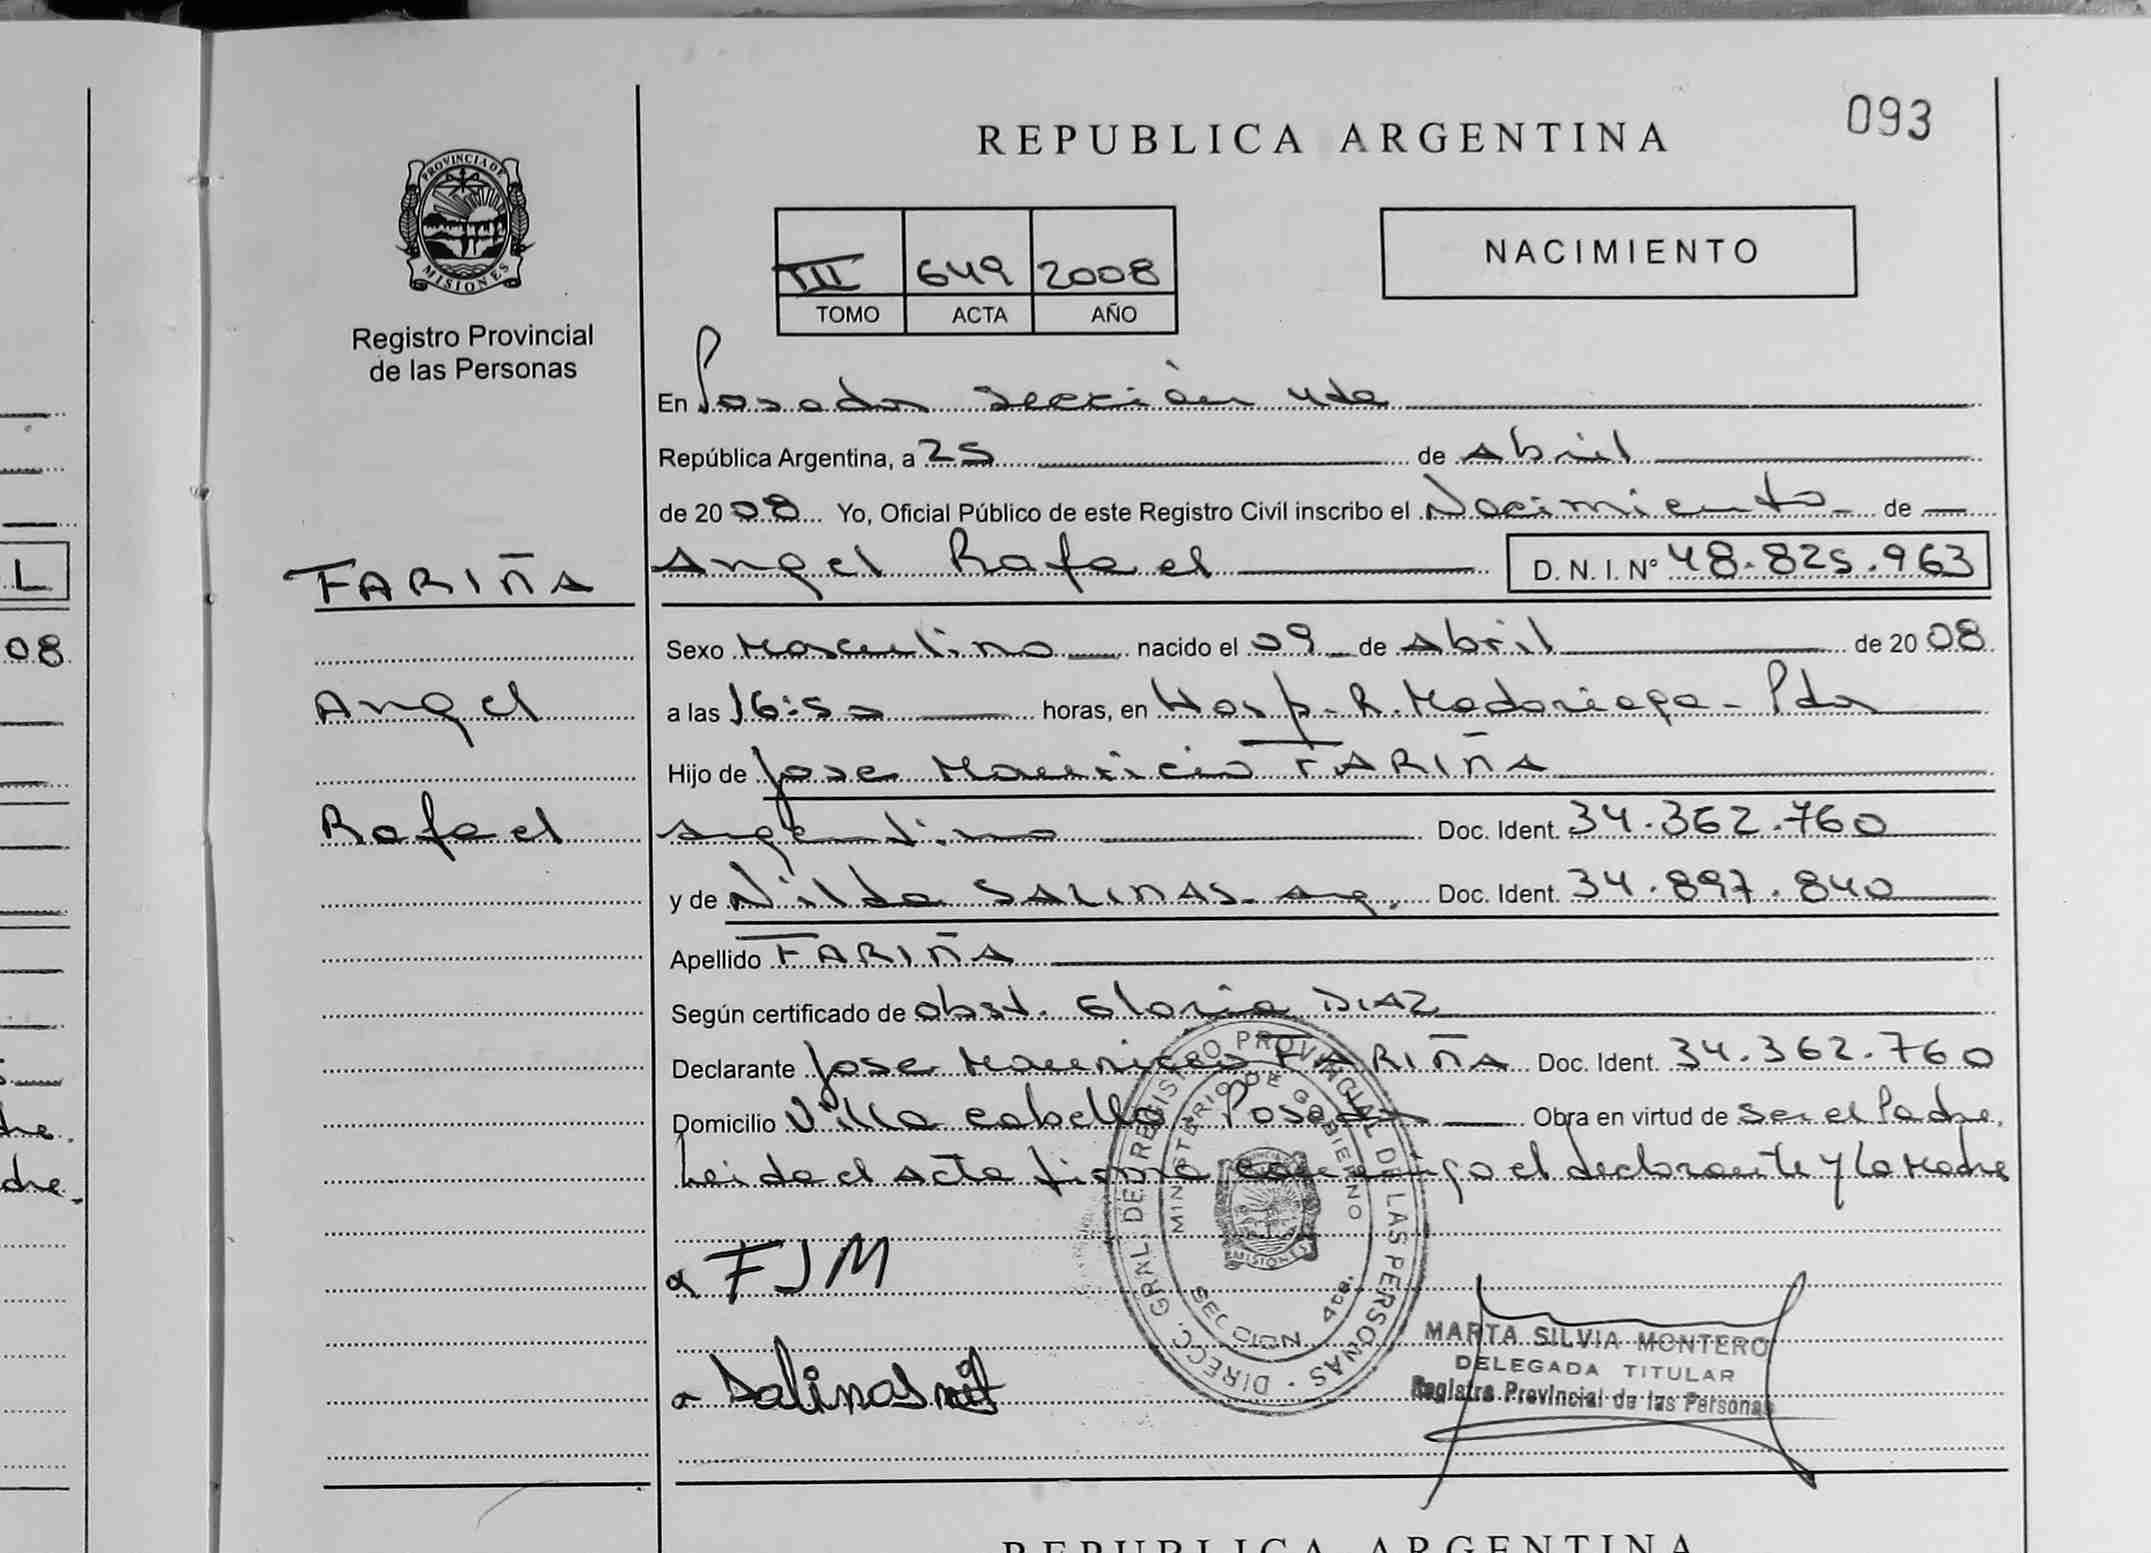 093
REPUBLICA ARGENTINA
PROVINCIA DE
MISIONES
Registro Provincial
de las Personas
III 649 2008
TOMO ACTA AÑO
NACIMIENTO
En Posadas Sección 4ta
República Argentina, a 25 de Abril
de 2008 Yo, Oficial Público de este Registro Civil inscribo el Nacimiento de
FARIÑA
Angel Rafael D. N. I. Nº 48.825.963
L
08
Sexo Masculino nacido el 09 de Abril de 2008
Angel
a las 16:50 horas, en Hosp. R. Madariaga - Pdas
Hijo de Jose Mauricio FARIÑA
Rafael
Argentino Doc. Ident. 34.362.760
y de Nilda SALINAS - Arg. Doc. Ident. 34.897.840
Apellido FARIÑA
Según certificado de obst. Gloria DIAZ
Declarante Jose Mauricio FARIÑA Doc. Ident. 34.362.760
Domicilio Villa Cabello Posadas Obra en virtud de Ser el Padre.
Leida el Acta firma conmigo el declarante y la Madre
DIRECC. GRAL. DE REGISTRO PROVINCIAL DE LAS PERSONAS
MINISTERIO DE GOBIERNO
MISIONES
SECCION 4ta.
FJM
Salinas
MARTA SILVIA MONTERO
DELEGADA TITULAR
Registro Provincial de las Personas
REPUBLICA ARGENTINA